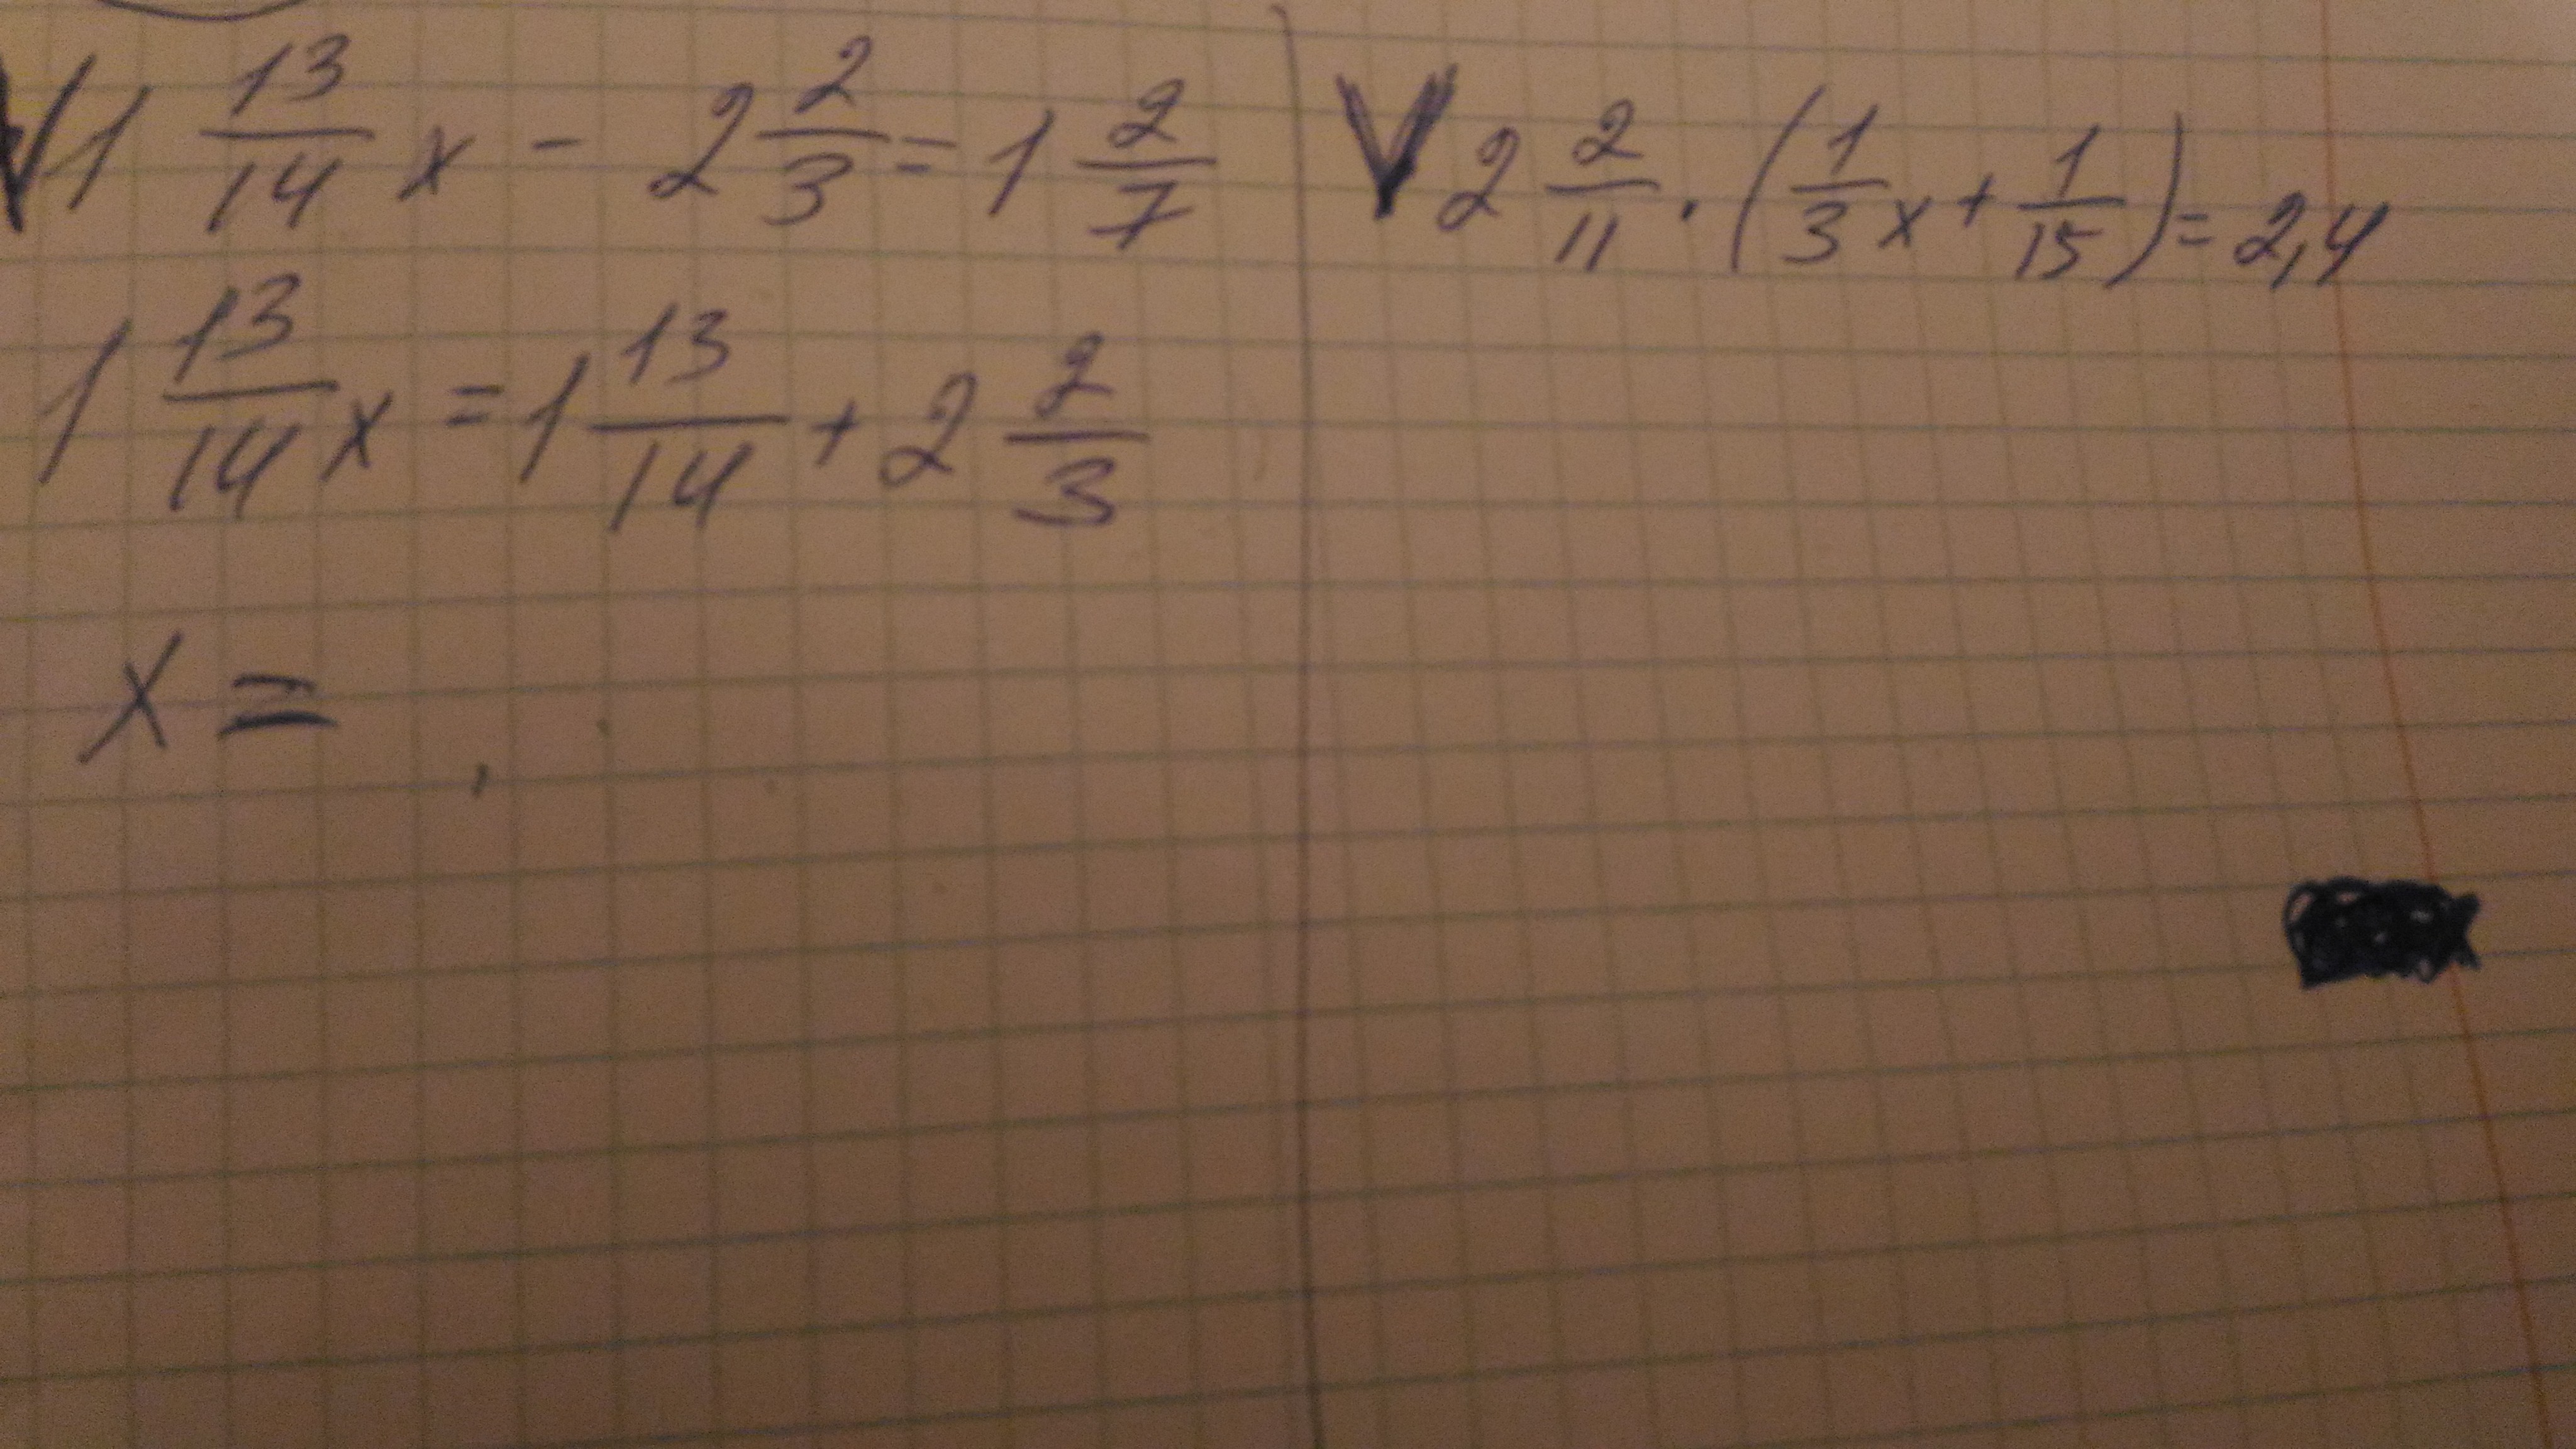 V 1 13/14 x - 2 2/3 = 1 2/7
1 13/14 x = 1 13/14 + 2 2/3
x =
V 2 2/11 · (1/3 x + 1/15) = 2,4